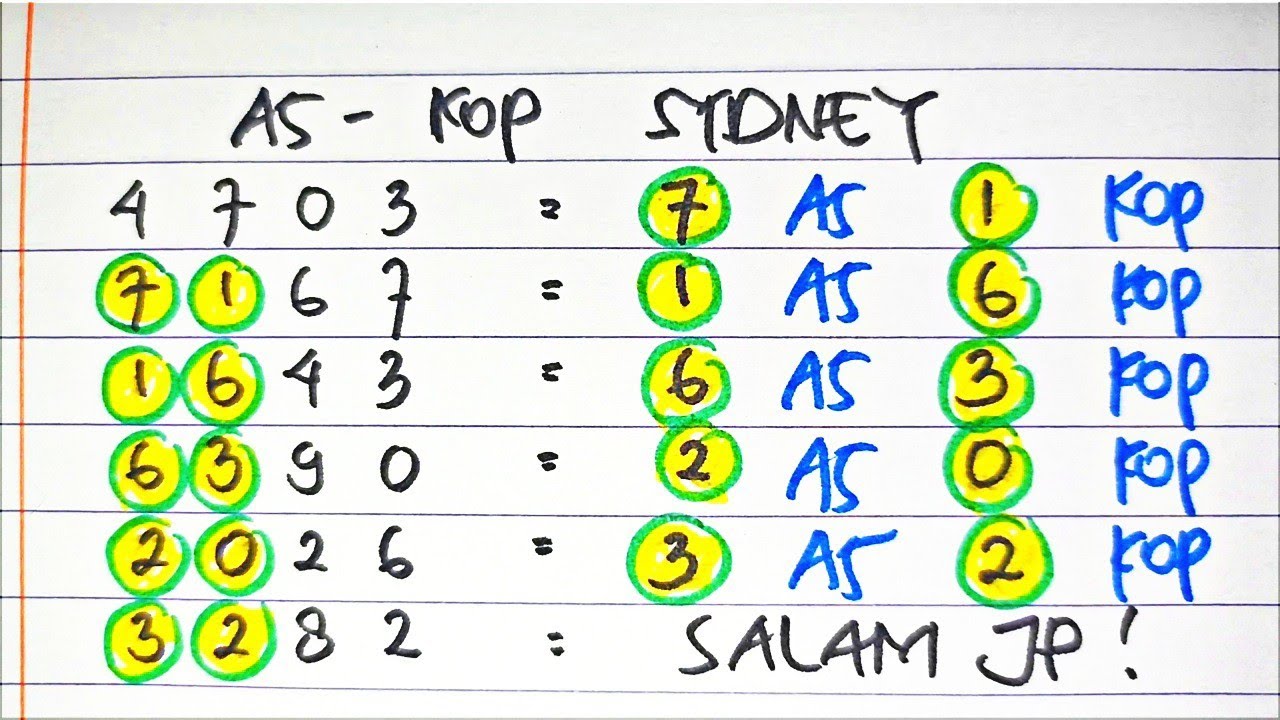 AS - KOP SYDNEY
4 7 0 3 = 7 AS 1 KOP
7 1 6 7 = 1 AS 6 KOP
1 6 4 3 = 6 AS 3 KOP
6 3 9 0 = 2 AS 0 KOP
2 0 2 6 = 3 AS 2 KOP
3 2 8 2 = SALAM JP!